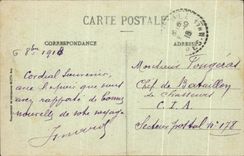 CARTE POSTALE
CORRESPONDANCE
ADRESSE
6 8bre 1918
Cordial Souvenir
que vous
avez rapporté de bonnes
nouvelles de votre voyage
Monsieur Fougeras
Chef de Bataillon
de Chasseurs
C.I.A
Secteur postal N° 178